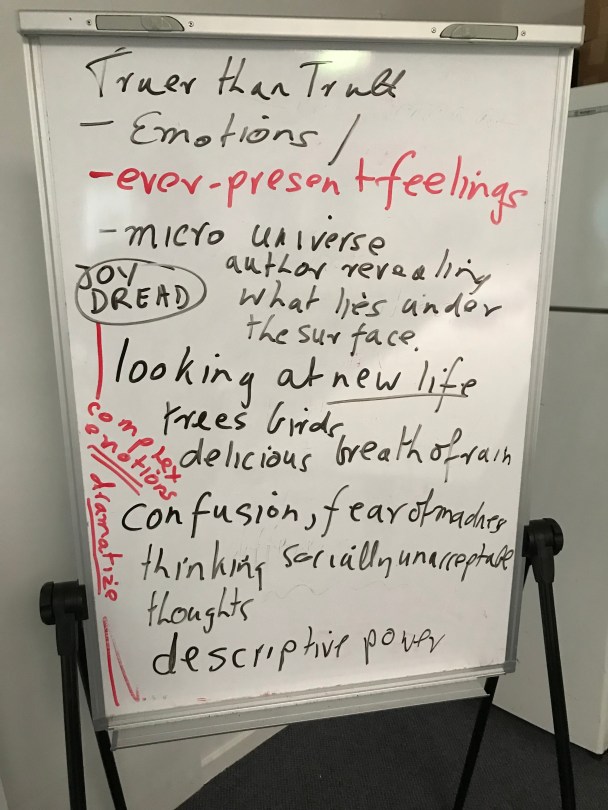 Truer than Truth
- Emotions /
- ever-present feelings
- micro universe
JOY
DREAD
author revealing
what lies under
the surface.
looking at new life
trees birds
delicious breath of rain
complex
emotions
dramatize
confusion, fear of madness
thinking socially unacceptable
thoughts
descriptive power